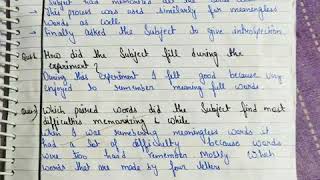 Subject had memorised all the
→ This process was used similarly for meaningless
words as well
→ Finally asked the Subject to give introspection.
Que: How did the Subject fill during the
experiment?
During this Experiment I felt good because
enjoyed to remember meaning full words
Que) Which paired words did the Subject find most
difficulties memorizing & while
when I was remembering meaningless words it
had a lot of difficulty because words
were too hard remember mostly which
words that are made by four letters